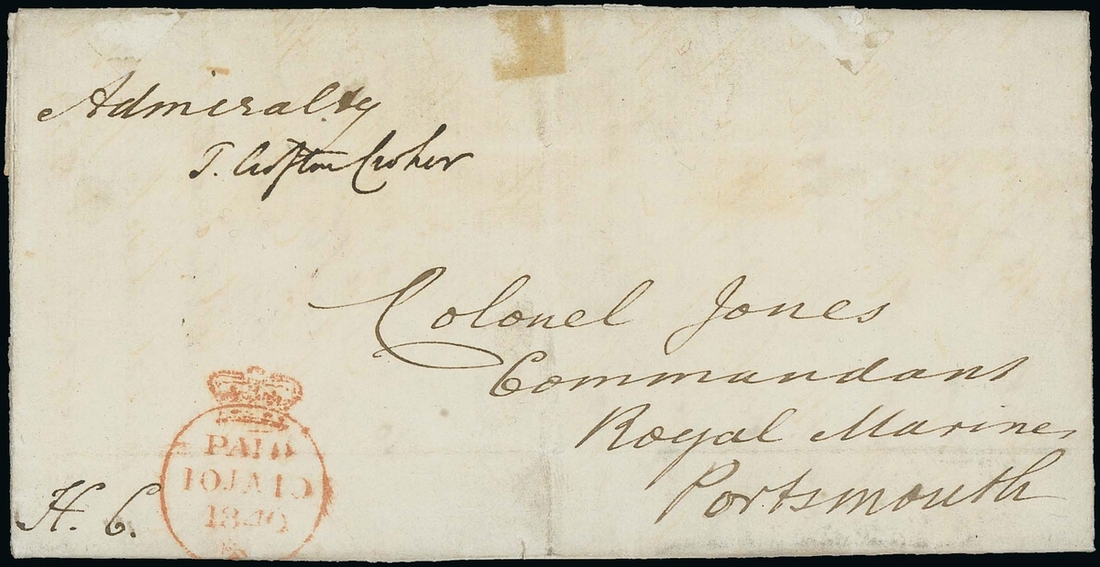 Admiralty
T. Crofton Croker
Colonel Jones
Commandant
Royal Marines
Portsmouth
PAID
10 JA 10
1840
H. C.